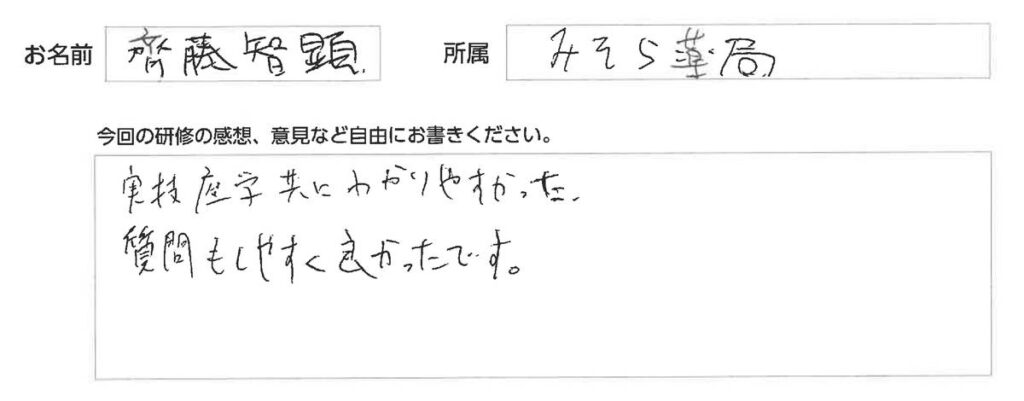 お名前 齊藤智顕 所属 みそら薬局
今回の研修の感想、意見など自由にお書きください。
実技座学共にわかりやすかった.
質問もしやすく良かったです。